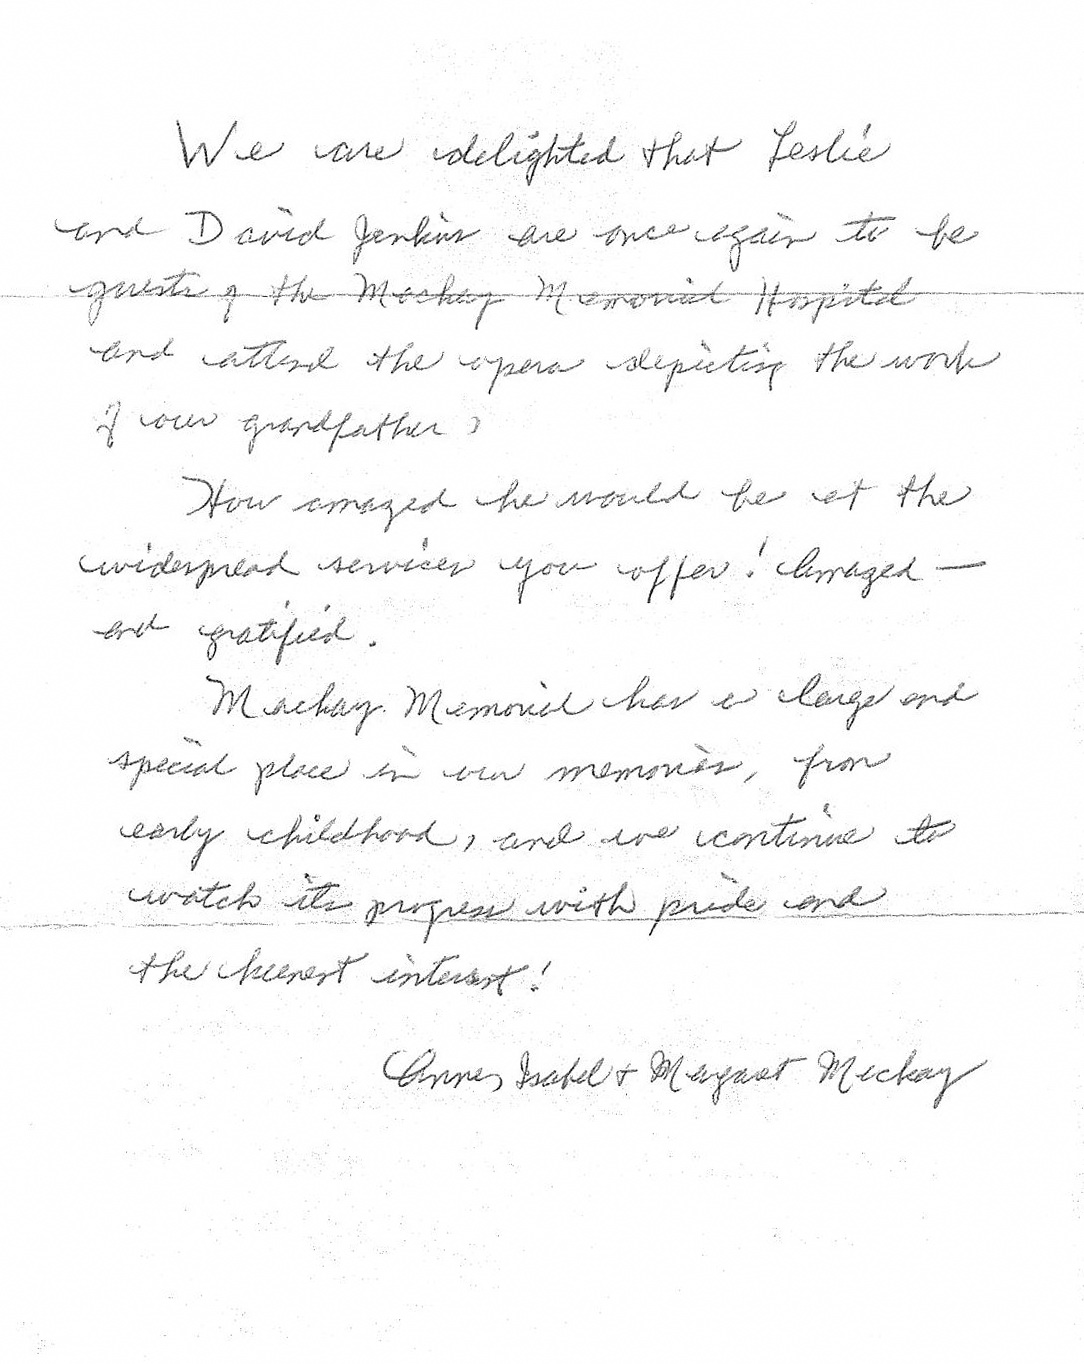 We are delighted that Leslie
and David Jenkins are once again to be
guests of the Mackay Memorial Hospital
and attend the opera depicting the work
of our grandfather.
How amazed he would be at the
widespread services you offer! Amazed —
and gratified.
Mackay Memorial has a large and
special place in our memories, from
early childhood, and we continue to
watch its progress with pride and
the keenest interest!
Anne, Isabel + Margaret Mackay